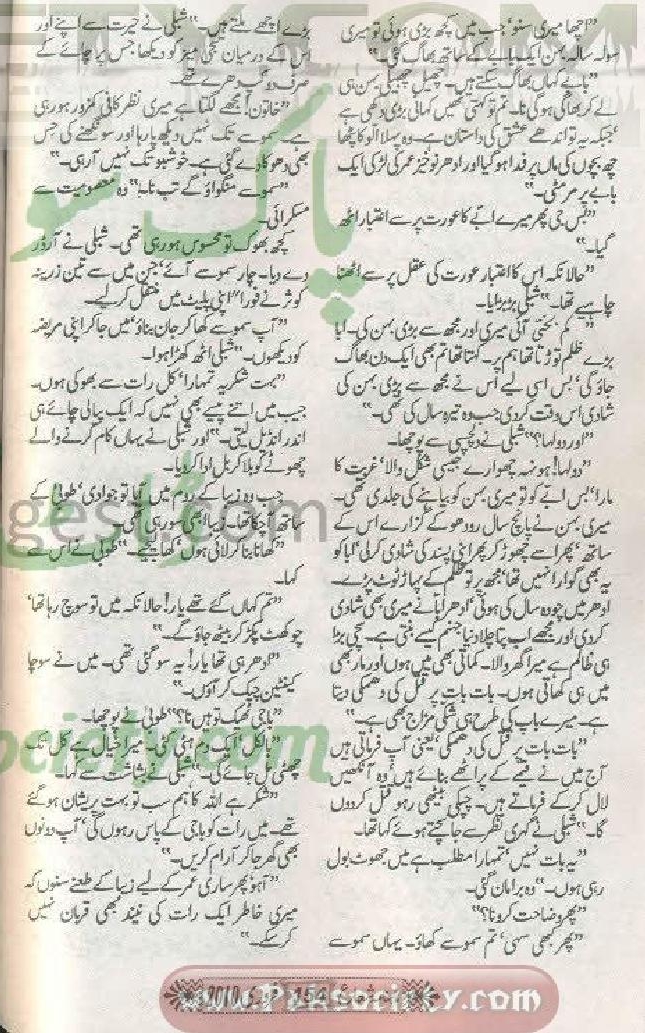 "اچھا میری سنو' جب میں کچھ بڑی ہوئی تو میری
سولہ سالہ بہن ایک بابے کے ساتھ بھاگ گئی۔"
"بابے کہاں بھاگ سکتے ہیں۔ چھیل چھبیلی بہن ہی
لے کر بھاگی ہوگی نا۔ تم تو کہتی تھیں کہانی بڑی دکھی ہے
'جبکہ یہ تو اندھے عشق کی داستان ہے۔ وہ پہلا الو کا پٹھا
چھ بچوں کی ماں پر فدا ہوگیا اور ادھر نوخیز عمر کی لڑکی ایک
بابے پر مرمٹی۔"
"بس جی پھر میرے ابے کا عورت پر سے اعتبار اٹھ
گیا۔"
"حالانکہ اس کا اعتبار عورت کی عقل پر سے اٹھنا
چاہیے تھا۔" شبلی بڑبڑایا۔
"کم بختی آئی میری اور مجھ سے بڑی بہن کی۔ ابا
بڑے ظلم توڑتا تھا ہم پر۔ کہتا تھا تم بھی ایک دن بھاگ
جاؤ گی' بس اسی لیے اس نے مجھ سے بڑی بہن کی
شادی اس وقت کردی جب وہ تیرہ سال کی تھی۔"
"اور دولہا؟" شبلی نے دلچسپی سے پوچھا۔
"دولہا! ہونہہ چھوارے جیسی شکل والا' غربت کا
مارا' بس ابے کو تو میری بہن کو بیاہنے کی جلدی تھی۔
میری بہن نے پانچ سال رو دھو کے گزارے اس کے
ساتھ' پھر اسے چھوڑ کر پھر اپنی پسند کی شادی کرلی' ابا کو
یہ بھی گوارا نہیں تھا' مجھ پر تو ظلم کے پہاڑ ٹوٹ پڑے۔
ادھر میں چودہ سال کی ہوئی' ادھر ابا نے میری بھی شادی
کردی اور مجھے اب پتا چلا دنیا جہنم کیسے بنتی ہے۔ سچی بڑا
ہی ظالم ہے میرا گھر والا۔ کماتی بھی میں ہوں اور مار بھی
میں ہی کھاتی ہوں۔ بات بات پر قتل کی دھمکی دیتا
ہے۔ میرے باپ کی طرح ہی شکی مزاج بھی ہے۔"
"بات بات پر قتل کی دھمکی' یعنی آپ فرماتی ہیں
آج میں نے قیمے کے پراٹھے بنائے ہیں' وہ آنکھیں
لال کرکے فرماتے ہیں۔ چپکی بیٹھی رہو قتل کردوں
گا۔" شبلی نے گہری نظر سے جانچتے ہوئے کہا تھا۔
"یہ بات نہیں' تمہارا مطلب ہے میں جھوٹ بول
رہی ہوں۔" وہ برا مان گئی۔
"پھر وضاحت کرو نا؟"
"پھر کبھی سہی' تم سموسے کھاؤ۔ یہاں سموسے
بڑے اچھے ملتے ہیں۔" شبلی نے حیرت سے اپنے اور
اس کے درمیان بچھی میز کو دیکھا جس پر چائے کے
صرف دو کپ دھرے تھے۔
"خاتون! مجھے لگتا ہے میری نظر کافی کمزور ہورہی
ہے۔ سموسے تک نہیں دیکھ پا رہا اور سونگھنے کی حس
بھی دھوکا دے گئی ہے۔ خوشبو تک نہیں آرہی۔"
"سموسے منگواؤ گے تب نا!" وہ معصومیت سے
مسکرائی۔
کچھ بھوک تو محسوس ہورہی تھی۔ شبلی نے آرڈر
دے دیا۔ چار سموسے آئے' جن میں سے تین زرینہ
کوثر نے فوراً" اپنی پلیٹ میں منتقل کرلیے۔
"آپ سموسے کھا کر جان بناؤ' میں جا کر اپنی مریضہ
کو دیکھوں۔" شبلی اٹھ کھڑا ہوا۔
"بہت شکریہ تمہارا' کل رات سے بھوکی ہوں۔
جیب میں اتنے پیسے بھی نہیں کہ ایک پیالی چائے ہی
اندر انڈیل لیتی۔" اور شبلی نے یہاں کام کرنے والے
چھوٹے کو بلا کر بل ادا کردیا۔
جب وہ زیبا کے روم میں آیا تو جوادی' طوبیٰ کے
ساتھ آچکا تھا۔ زیبا ابھی سو رہی تھی۔
"کھانا بنا کر لائی ہوں' کھا لیجیے۔" طوبیٰ نے اس سے
کہا۔
"تم کہاں گئے تھے یار! حالانکہ میں تو سوچ رہا تھا'
چوکھٹ پکڑ کر بیٹھ جاؤ گے۔"
"ادھر ہی تھا یار! یہ سو گئی تھی۔ میں نے سوچا
کینٹین چیک کر آؤں۔"
"باجی ٹھیک تو ہیں نا؟" طوبیٰ نے پوچھا۔
"بالکل ایک دم ہٹی کٹی۔ میرا خیال ہے کل تک
چھٹی مل جائے گی۔" شبلی نے بشاشت سے کہا۔
"شکر ہے اللہ کا' ہم سب تو بہت پریشان ہوگئے
تھے۔ میں رات کو باجی کے پاس رہوں گی' آپ دونوں
بھی گھر جا کر آرام کریں۔"
"آہو' پھر ساری عمر کے لیے زیبا کے طعنے سنوں کہ
میری خاطر ایک رات کی نیند بھی قربان نہیں
کرسکے۔"
پاک سو
gest.com
ociety.com
154
2010
www.Paksociety.com